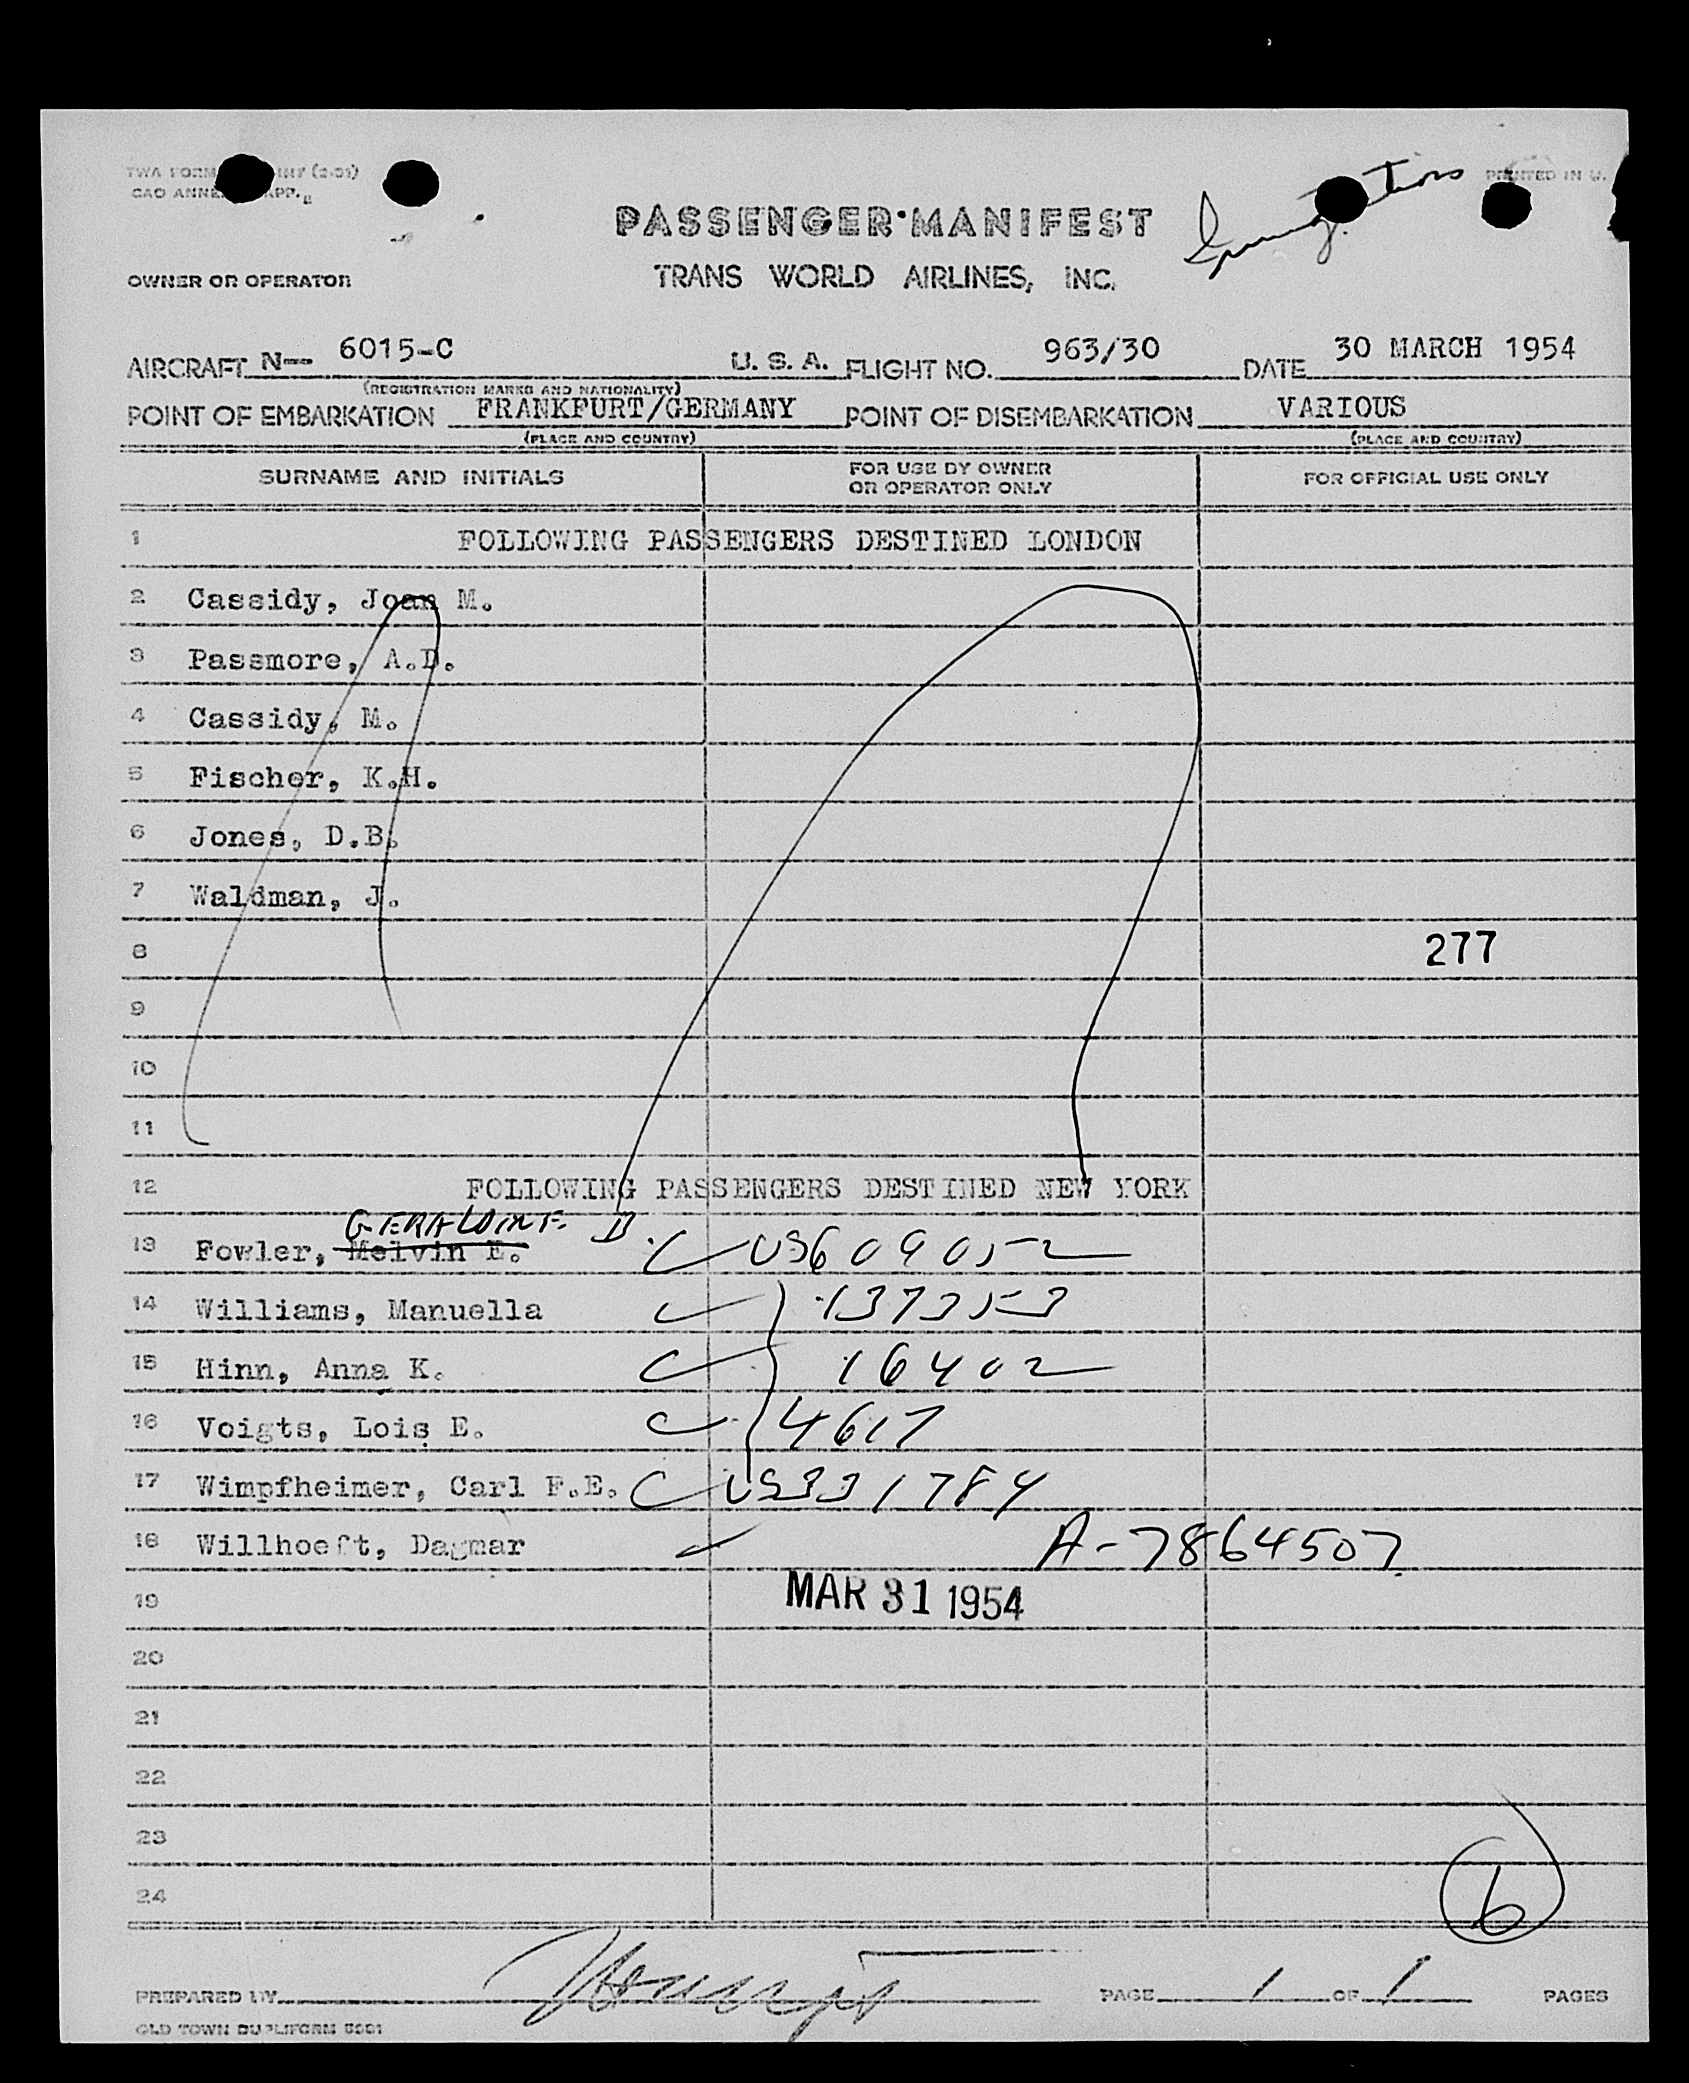 TWA FORM
PRINTED IN U.
PASSENGER MANIFEST
Immigration
OWNER OR OPERATOR TRANS WORLD AIRLINES, INC.
AIRCRAFT N— 6015-C U. S. A. FLIGHT NO. 963/30 DATE 30 MARCH 1954
(REGISTRATION MARKS AND NATIONALITY)
POINT OF EMBARKATION FRANKFURT/GERMANY POINT OF DISEMBARKATION VARIOUS
(PLACE AND COUNTRY) (PLACE AND COUNTRY)
SURNAME AND INITIALS FOR USE BY OWNER OR OPERATOR ONLY FOR OFFICIAL USE ONLY
1 FOLLOWING PASSENGERS DESTINED LONDON
2 Cassidy, Joan M.
3 Passmore, A.D.
4 Cassidy, M.
5 Fischer, K.H.
6 Jones, D.B.
7 Waldman, J.
8 277
9
10
11
12 FOLLOWING PASSENGERS DESTINED NEW YORK
GERALDINE B.
13 Fowler, Melvin E. US609052
14 Williams, Manuella 137353
15 Hinn, Anna K. 16402
16 Voigts, Lois E. 4617
17 Wimpfheimer, Carl F.E. US331784
18 Willhoeft, Dagmar A-7864507
19 MAR 31 1954
20
21
22
23
24
6
PREPARED BY PAGE 1 OF 1 PAGES
OLD TOWN DUPLIFORM